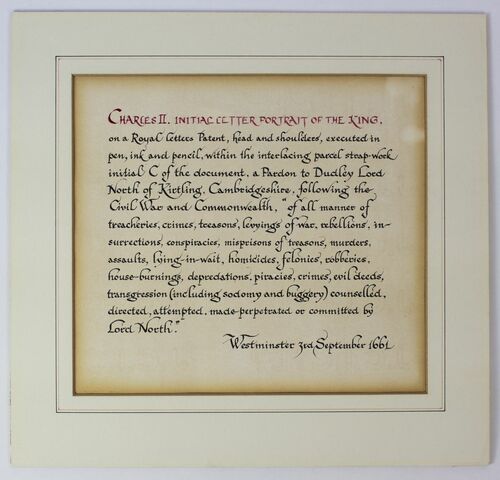 CHARLES II. INITIAL LETTER PORTRAIT OF THE KING,
on a Royal Letters Patent, head and shoulders, executed in
pen, ink and pencil, within the interlacing parcel strap-work
initial C of the document, a Pardon to Dudley Lord
North of Kirtling, Cambridgeshire, following the
Civil War and Commonwealth, "of all manner of
treacheries, crimes, treasons, levyings of war, rebellions, in-
surrections, conspiracies, misprisons of treasons, murders,
assaults, lying-in-wait, homicides, felonies, robberies,
house-burnings, depredations, piracies, crimes, evil deeds,
transgression (including sodomy and buggery) counselled,
directed, attempted, made-perpetrated or committed by
Lord North."
Westminster 3rd, September 1661